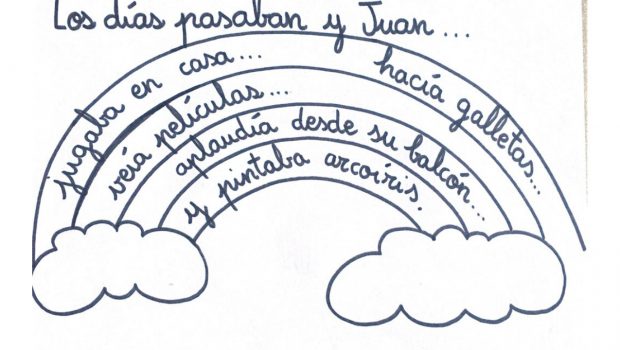 Los días pasaban y Juan...
jugaba en casa... hacía galletas...
veía películas...
aplaudía desde su balcón...
y pintaba arcoíris.